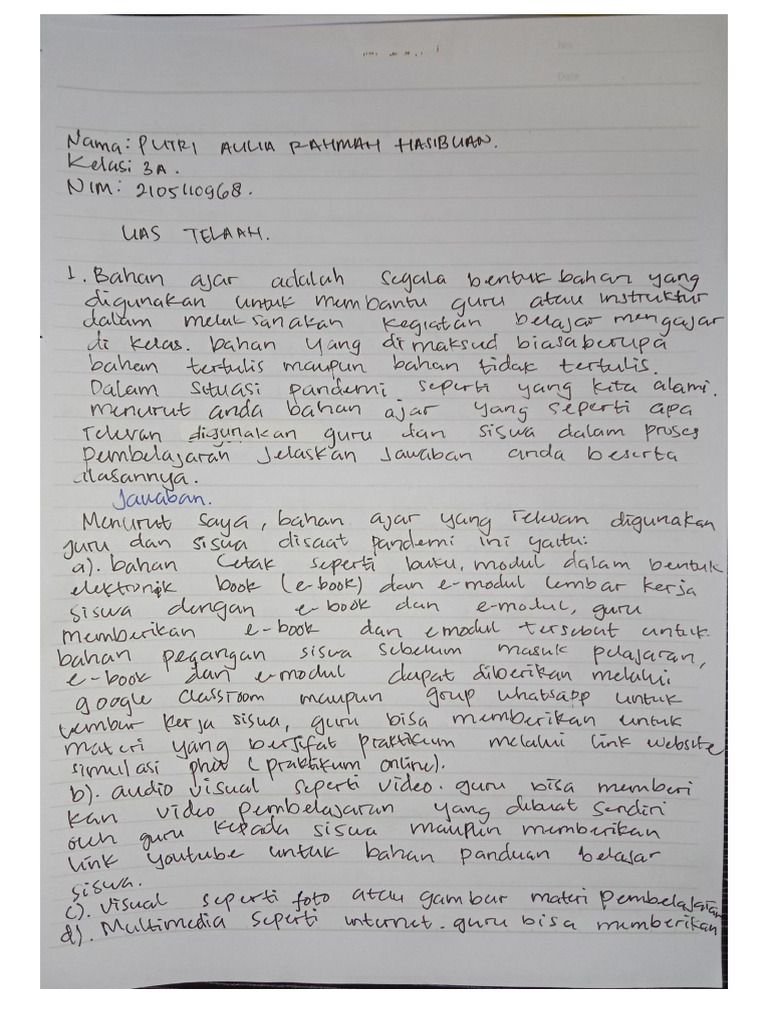 Nama: PUTRI AULIA RAHMAH HASIBUAN.
Kelas: 3A.
NIM: 2105110968.
UAS TELAAH.
1. Bahan ajar adalah segala bentuk bahan yang
digunakan untuk membantu guru atau instruktur
dalam melaksanakan kegiatan belajar mengajar
di kelas. bahan yang dimaksud biasa berupa
bahan tertulis maupun bahan tidak tertulis.
Dalam situasi pandemi seperti yang kita alami.
menurut anda bahan ajar yang seperti apa
relevan digunakan guru dan siswa dalam proses
pembelajaran jelaskan jawaban anda beserta
alasannya.
Jawaban.
Menurut saya, bahan ajar yang relevan digunakan
guru dan siswa disaat pandemi ini yaitu:
a). bahan cetak seperti buku, modul dalam bentuk
elektronik book (e-book) dan e-modul lembar kerja
siswa dengan e-book dan e-modul, guru
memberikan e-book dan emodul tersebut untuk
bahan pegangan siswa sebelum masuk pelajaran,
e-book dan e-modul dapat diberikan melalui
google classroom maupun grup whatsapp untuk
lembar kerja siswa, guru bisa memberikan untuk
materi yang bersifat praktikum melalui link website
simulasi phet (praktikum online).
b). audio visual seperti video. guru bisa memberi
kan video pembelajaran yang dibuat sendiri
oleh guru kepada siswa maupun memberikan
link youtube untuk bahan panduan belajar
siswa.
c). visual seperti foto atau gambar materi pembelajaran
d). Multimedia seperti internet. guru bisa memberikan